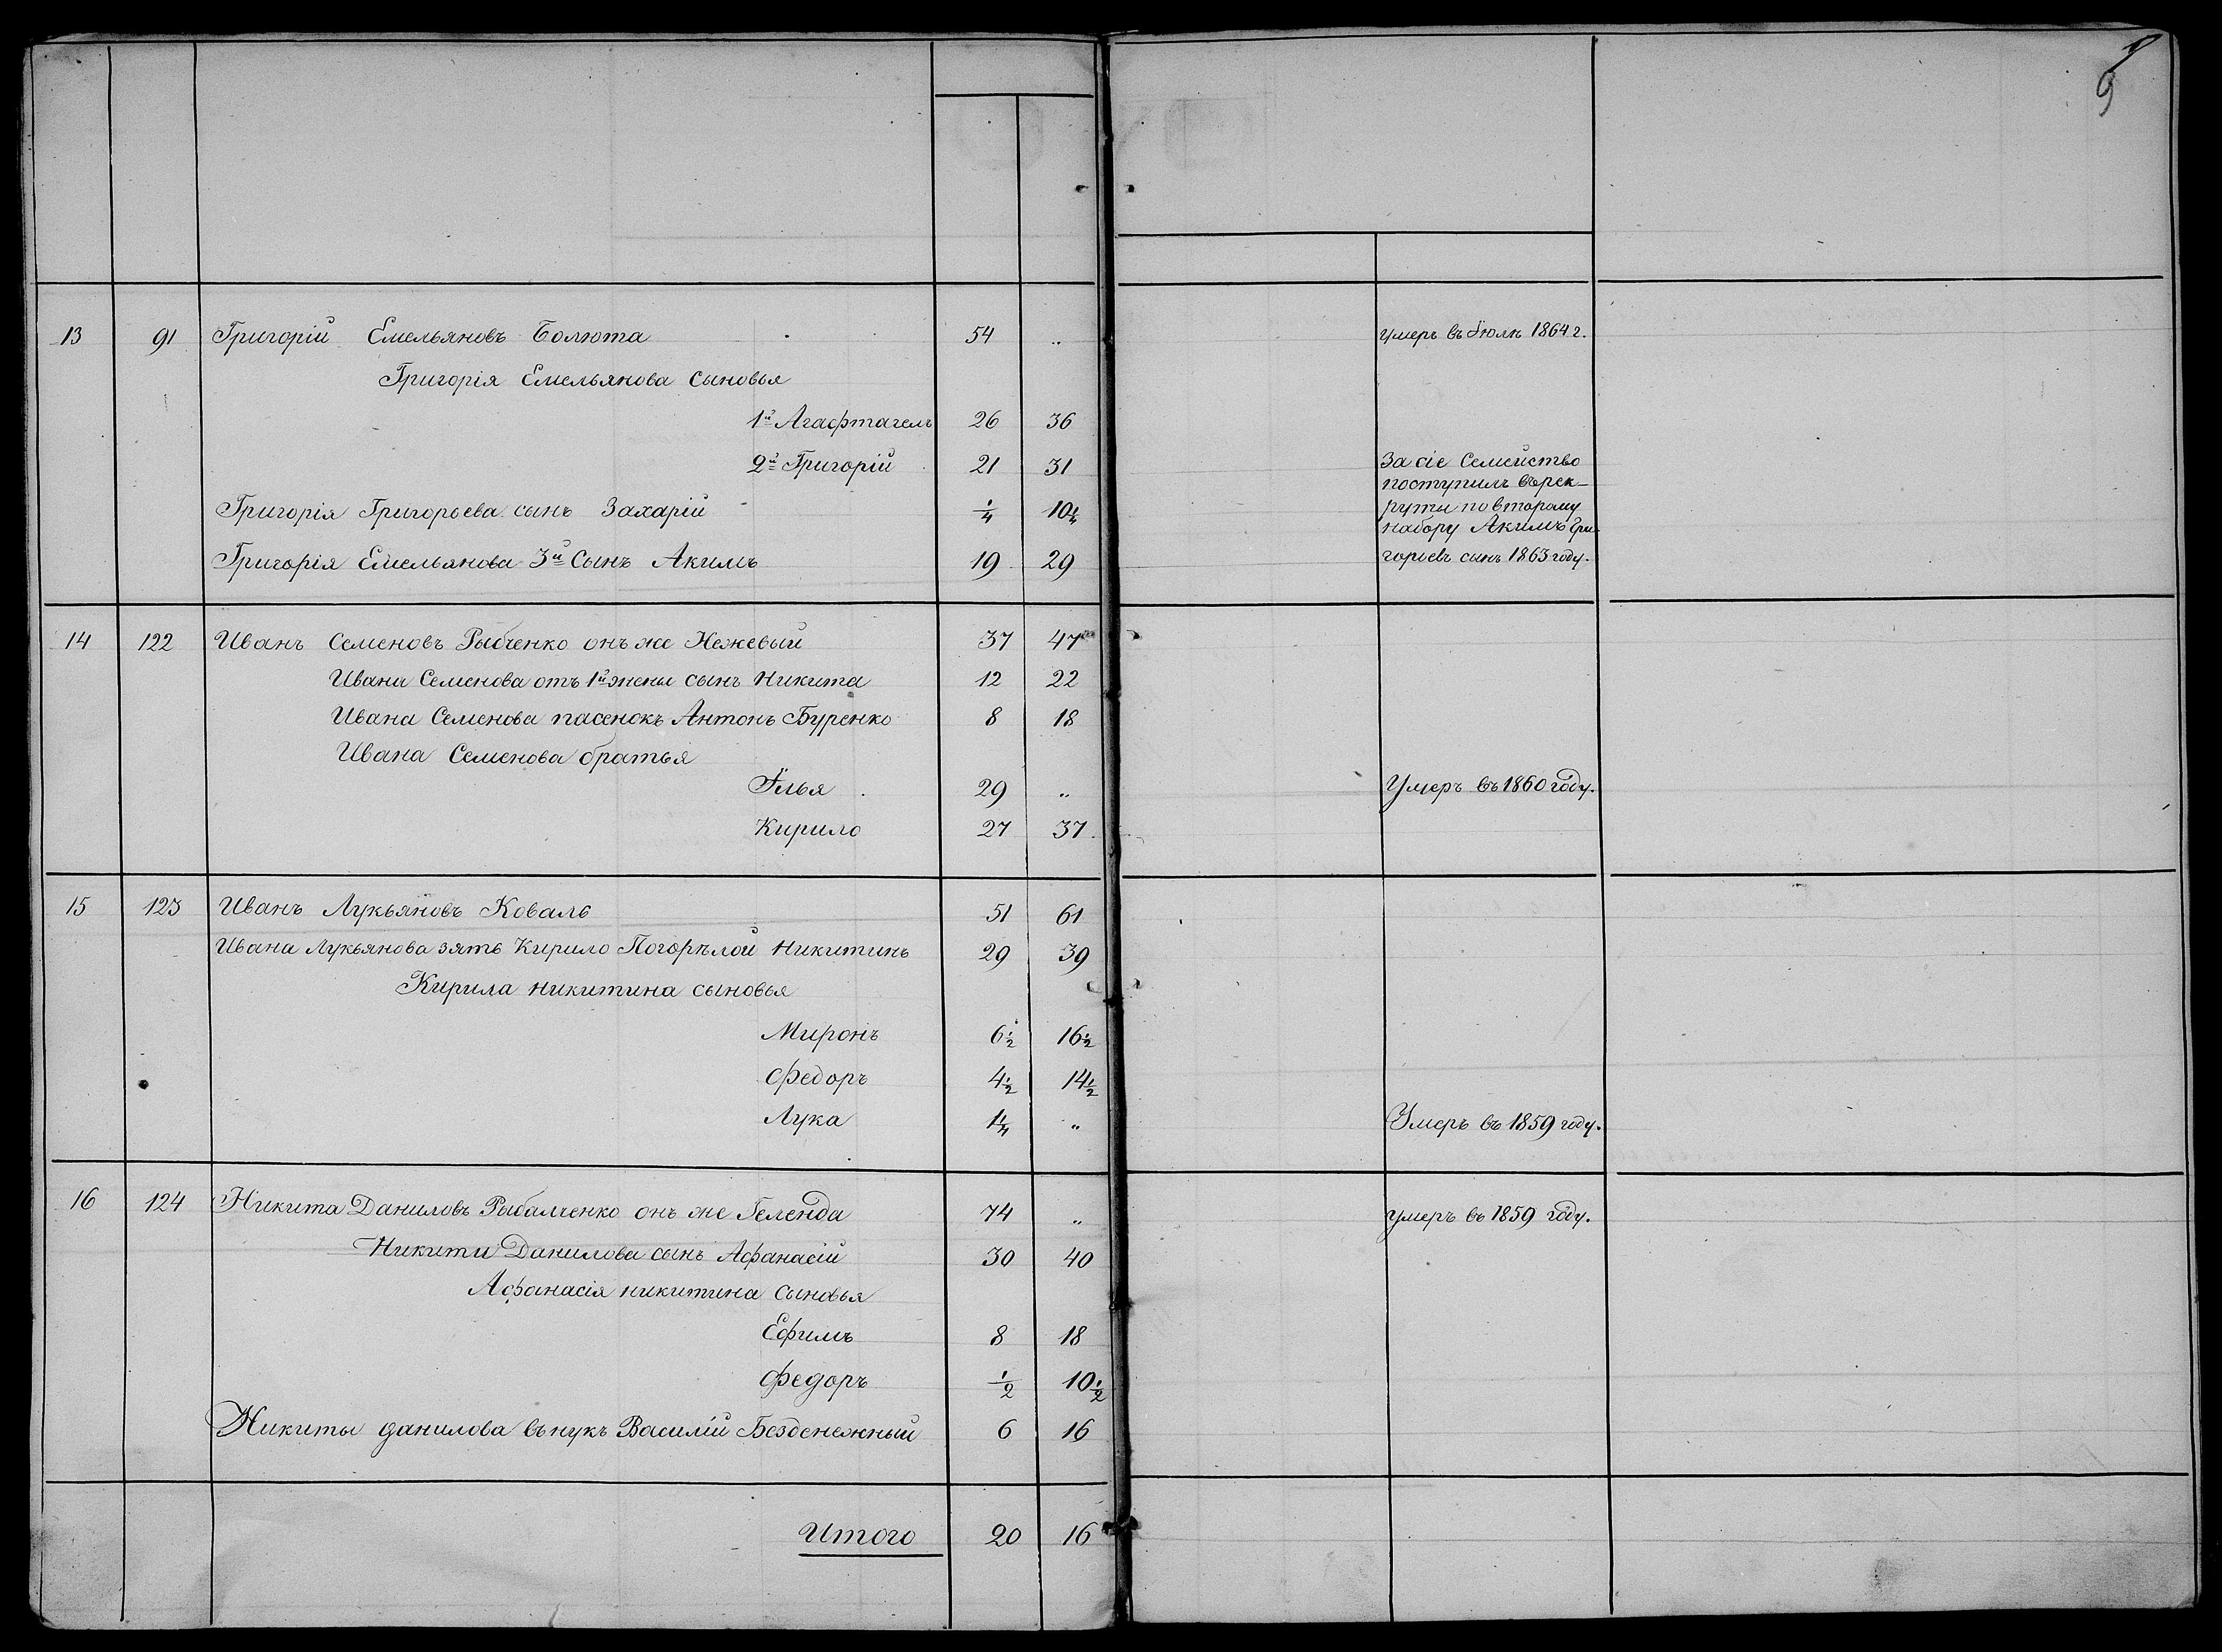 9
13 91 Григорій Емельяновъ Болюта 54 .. умеръ въ Іюлѣ 1864 г.
Григорія Емельянова сыновья
1й Агафтагелъ 26 36
2й Григорій 21 31 За сіе Семейство
поступилъ върек-
Григорія Григорьева сынъ Захарій 1/4 10 1/4 руты по второму
набору Акимъ Гри-
Григорія Емельянова 3й Сынъ Акимъ 19 29 горьевъ сынъ 1863 году.
14 122 Иванъ Семеновъ Рыбченко онъ же Нежевый 37 47
Ивана Семенова отъ 1й жены сынъ Никита 12 22
Ивана Семенова пасенокъ Антонъ Буренко 8 18
Ивана Семенова братья
Илья 29 .. Умеръ въ 1860 году.
Кирило 27 37
15 123 Иванъ Лукьяновъ Коваль 51 61
Ивана Лукьянова зять Кирило Погорѣлой Никитинъ 29 39
Кирила никитина сыновья
Миронъ 6 1/2 16 1/2
Федоръ 4 1/2 14 1/2
Лука 1 1/4 .. Умеръ въ 1859 году.
16 124 Никита Даниловъ Рыбалченко онъ же Геленда 74 .. умеръ въ 1859 году.
Никиты Данилова сынъ Афанасій 30 40
Афанасія никитина сыновья
Ефимъ 8 18
Федоръ 1/2 10 1/2
Никиты данилова внукъ Василій Безденежный 6 16
Итого 20 16